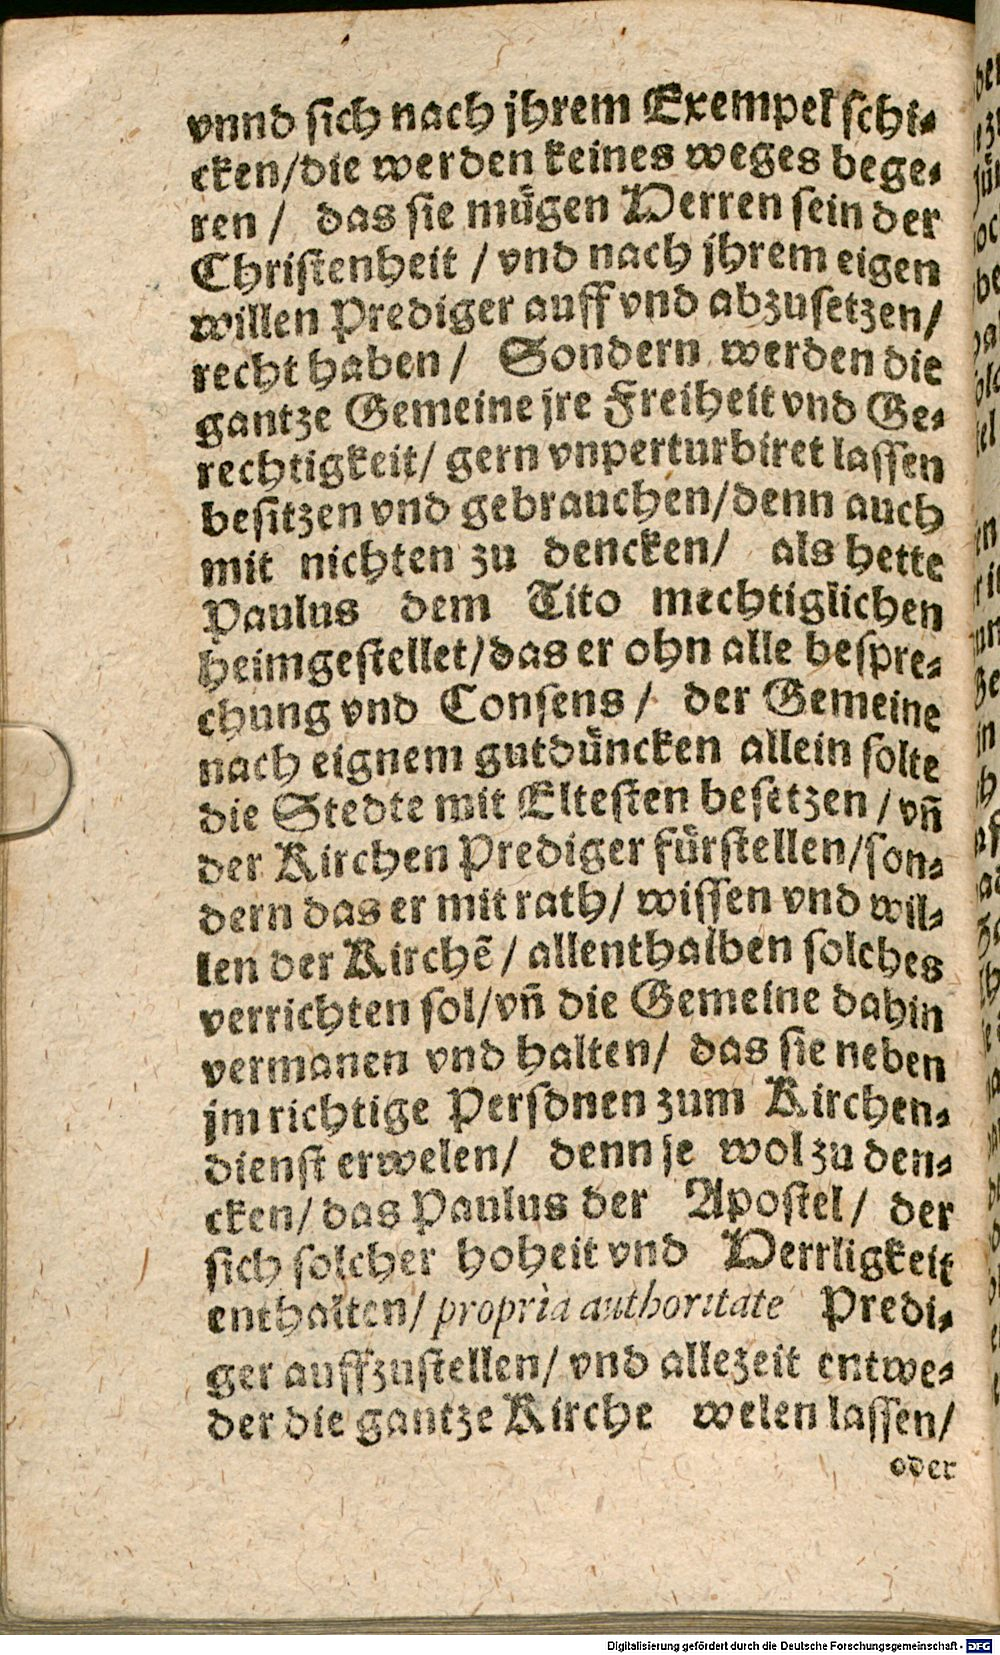 vnnd sich nach jhrem Exempel schi-
cken/die werden keines weges bege-
ren / das sie mügen Herren sein der
Christenheit / vnd nach jhrem eigen
willen Prediger auff vnd abzusetzen/
recht haben / Sondern werden die
gantze Gemeine jre Freiheit vnd Ge-
rechtigkeit/ gern vnperturbiret lassen
besitzen vnd gebrauchen/denn auch
mit nichten zu dencken/ als hette
Paulus dem Tito mechtiglichen
heimgestellet/das er ohn alle bespre-
chung vnd Consens / der Gemeine
nach eignem gutdüncken allein solte
die Stedte mit Eltesten besetzen / vñ
der Kirchen Prediger fürstellen/son-
dern das er mit rath/ wissen vnd wil-
len der Kirchẽ / allenthalben solches
verrichten sol/vñ die Gemeine dahin
vermanen vnd halten/ das sie neben
jm richtige Persönen zum Kirchen-
dienst erwelen/ denn je wol zu den-
cken/ das Paulus der Apostel / der
sich solcher hoheit vnd Herrligkeit
enthalten/ propriâ authoritate Predi-
ger auffzustellen/ vnd allezeit entwe-
der die gantze Kirche welen lassen/
oder
Digitalisierung gefördert durch die Deutsche Forschungsgemeinschaft - DFG